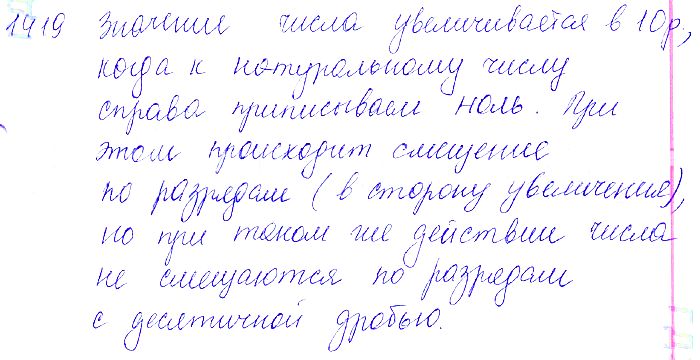 1419 Значение числа увеличивается в 10р.,
когда к натуральному числу
справа приписываем ноль. При
этом происходит смещение
по разрядам (в сторону увеличения),
но при таком же действии числа
не смещаются по разрядам
с десятичной дробью.